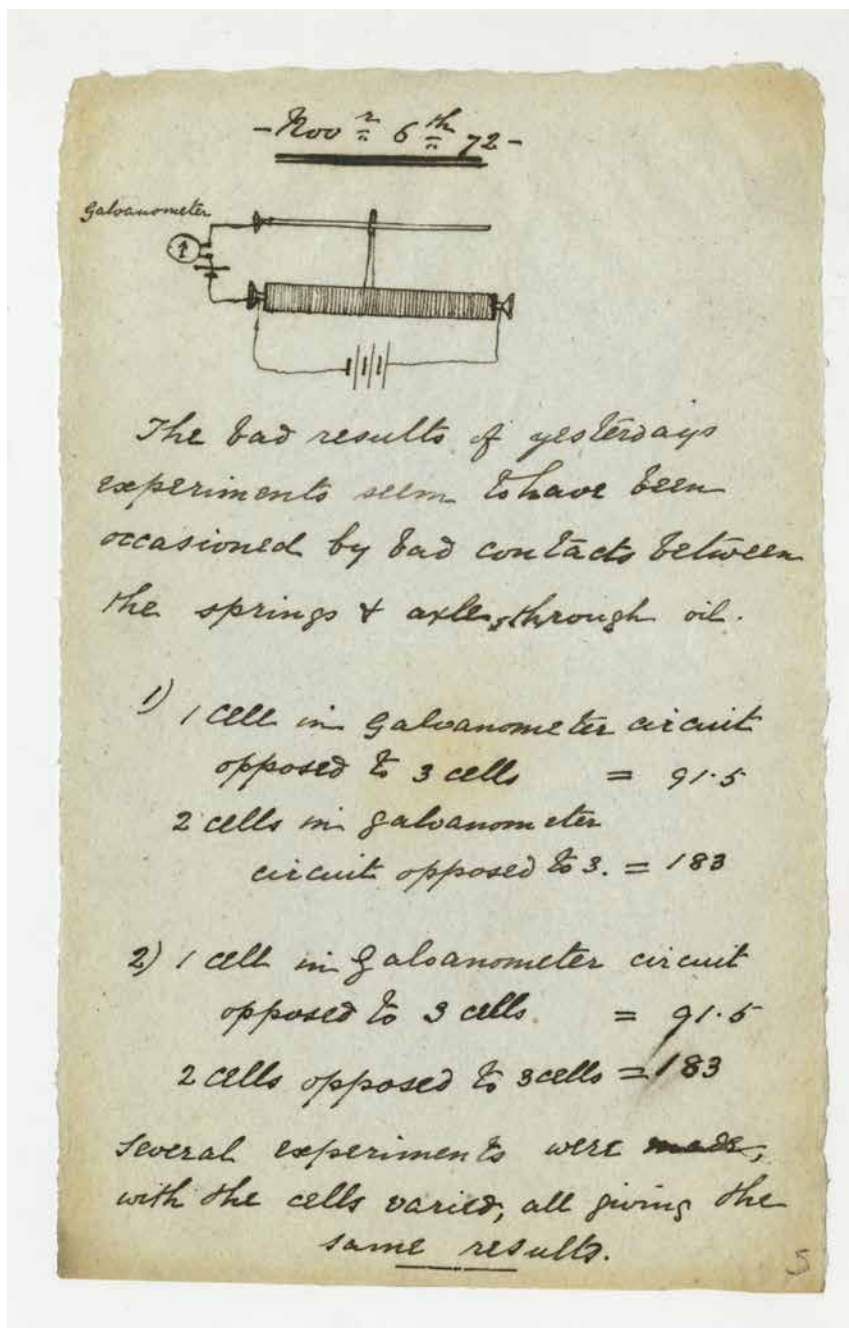 - Novr 6th 72 -
Galvanometer
The bad results of yesterdays
experiments seem to have been
occasioned by bad contacts between
the springs & axle, through oil.
1) 1 cell in Galvanometer circuit
opposed to 3 cells = 91.5
2 cells in galvanometer
circuit opposed to 3. = 183
2) 1 cell in Galvanometer circuit
opposed to 3 cells. = 91.5
2 cells opposed to 3 cells = 183
Several experiments were made,
with the cells varied, all giving the
same results.
5